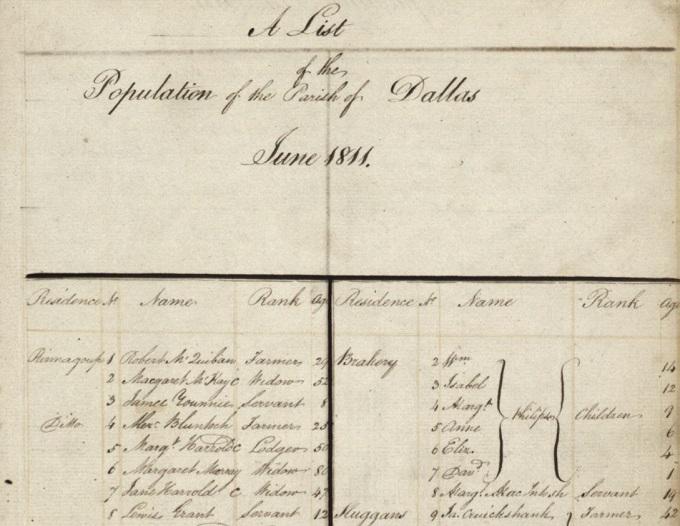 A List
of the
Population of the Parish of Dallas
June 1811.
Residence No Name Rank Age
1 Robert McQuiban Farmer 29
2 Margaret McKay c Widow 52
3 James Servant 8
Ditto 4 Alexr Farmer 25
5 Margt Harrold c Lodger 50
6 Margaret Murray Widow 80
7 Jane Harrold c Widow 47
8 Lewis Grant Servant 12
Residence No Name Rank Age
Brahery 2 Wm 14
3 Isabel 12
4 Margt Philip Children 9
5 Anne 6
6 Eliz. 4
7 Davd 1
8 Margt MacIntosh Servant 19
9 Jn Cruickshank Farmer 42